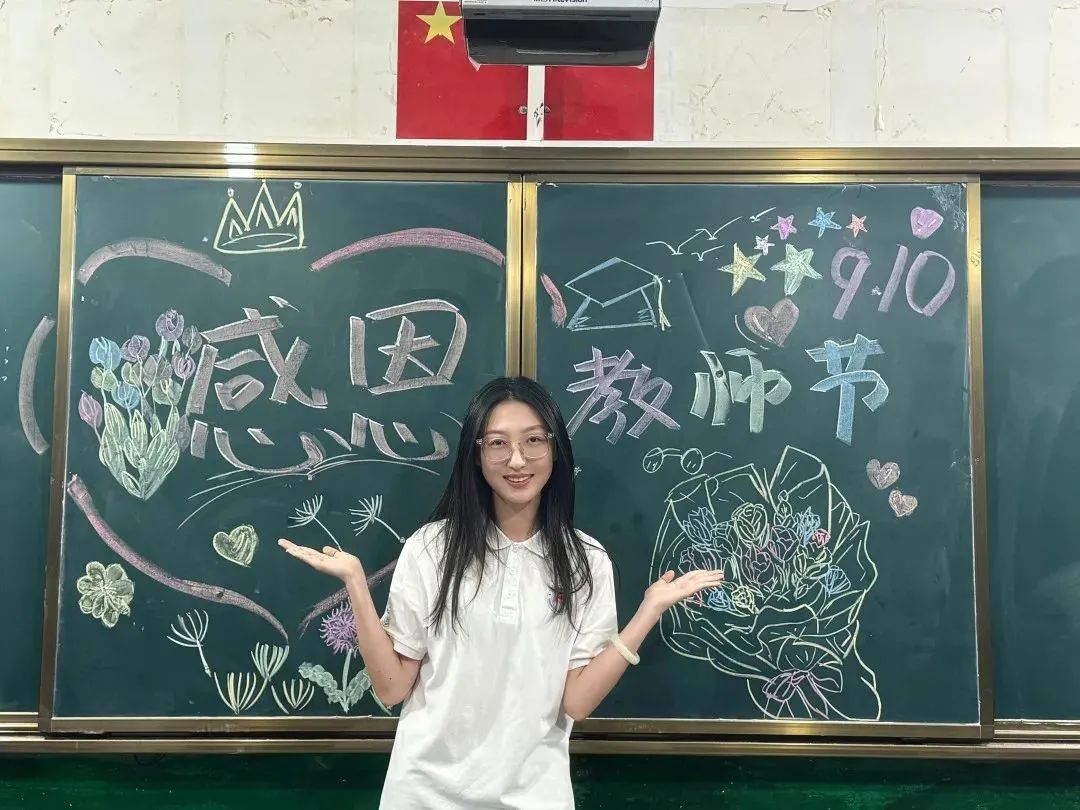 感恩
9.10
教师节